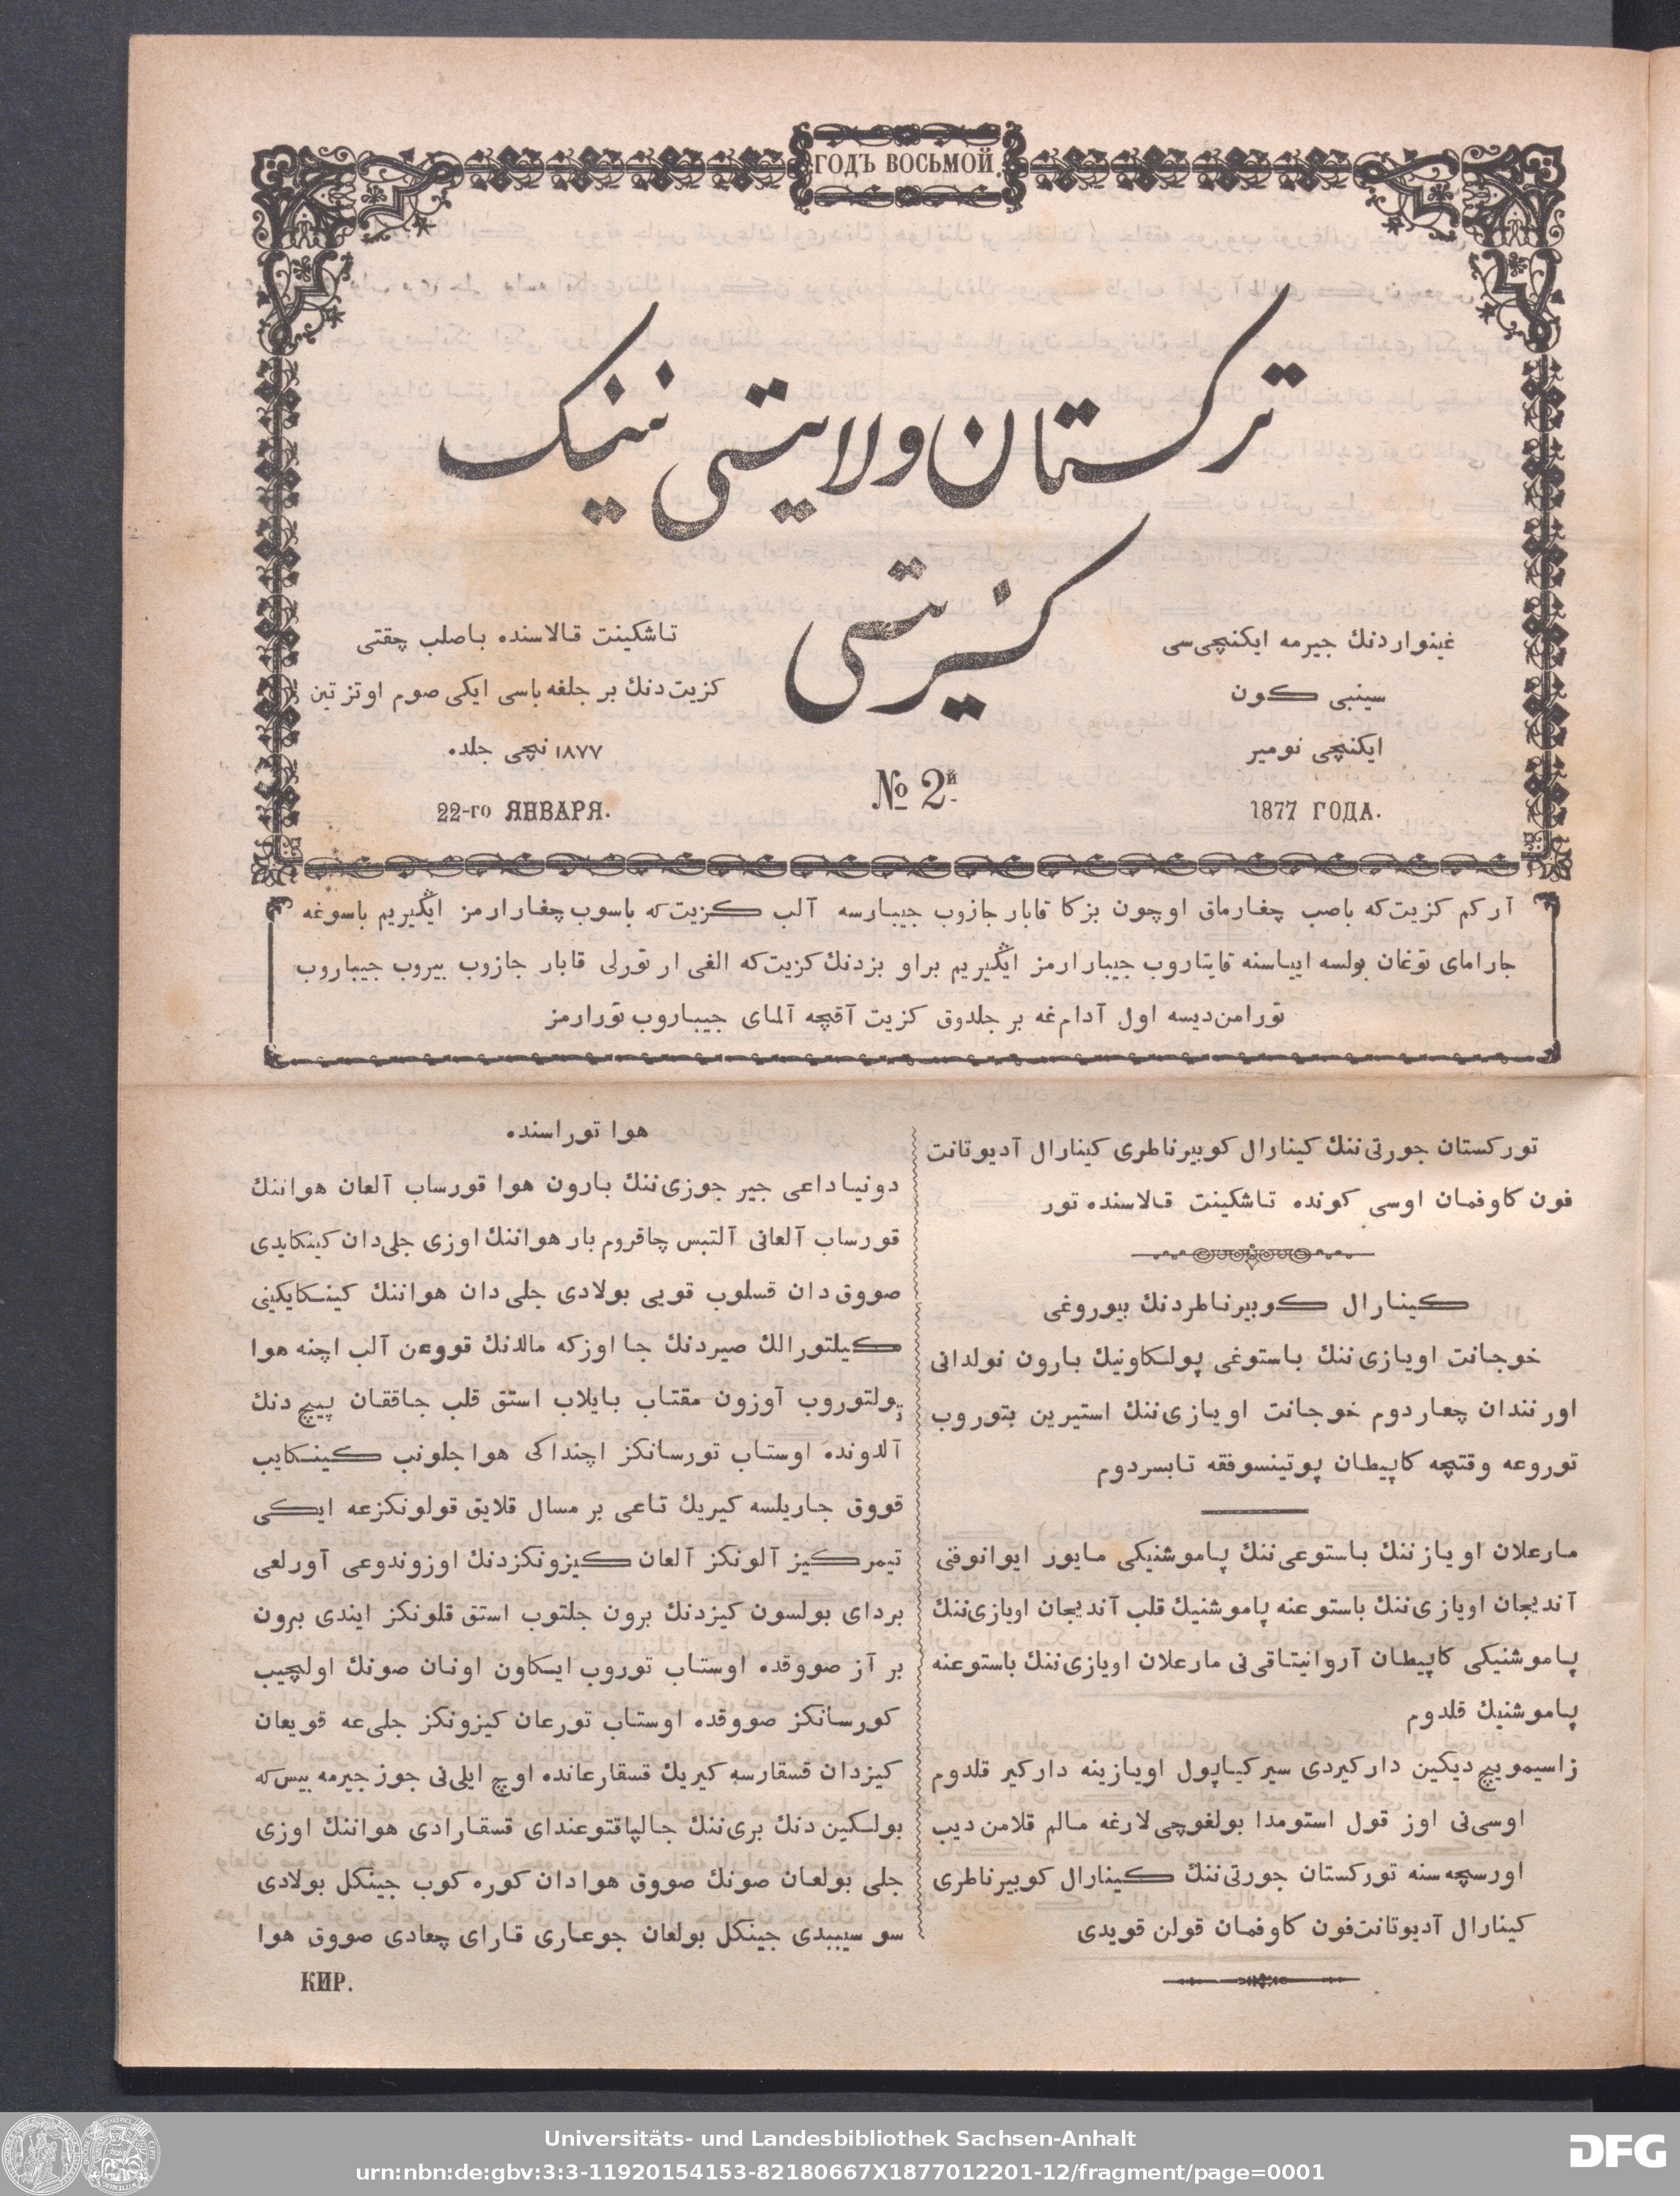 ГОДЪ ВОСЬМОЙ.
تركستان ولايتی نینک
كزیتی
غینواردنك جیرمه ایکنچی‌سی
سینبی كون
ایکنچی نومیر
1877 ГОДА.
№ 2й
تاشكینت قالاسنده باصلب چقتی
كزیت‌دنك بر جلغه باسی ایکی صوم اوتز تین
١٨٧٧ نچی جلده
22-го ЯНВАРЯ.
آر كم كزیت‌كه باصب چغارماق اوچون بزكا قابار جازوب جیبارسه آلب كزیت‌كه باسوب چغارارمز ایڭیریم باسوغه
جارامای توغان بولسه اییاسنه قایتاروب جیبارارمز ایڭیریم براو بزدنك كزیت‌كه الغی ار تورلی قابار جازوب بیروب جیباروب
تورامن‌دیسه اول آدام‌غه بر جلدوق كزیت آقچه آلمای جیباروب تورارمز
توركستان جورتی‌ننك كینارال كوبیرناطری كینارال آدیوتانت
فون كاوفمان اوسی كونده تاشكینت قالاسنده تور
كینارال كوبیرناطردنك بیوروغی
خوجانت اویازی‌ننك باستوغی پولكاونیك بارون نولدانی
اورنندان چعاردوم خوجانت اویازی‌ننك استیرین بتوروب
توروعه وقتچه كاپیطان پوتینسوفقه تابسردوم
مارعلان اویازننك باستوعی‌ننك پاموشنیکی مایور ایوانوقتی
آندیجان اویازی‌ننك باستوعنه پاموشنیك قلب آندیجان اویازی‌ننك
پاموشنیکی كاپیطان آروانیتاقی‌نی مارعلان اویازی‌ننك باستوعنه
پاموشنیك قلدوم
زاسیموییچ دیكین داركیردی سیركیاپول اویازینه داركیر قلدوم
اوسی‌نی اوز قول استومدا بولغوچی‌لارغه مالم قلامن دیب
اورسچه‌سنه توركستان جورتی‌ننك كینارال كوبیرناطری
كینارال آدیوتانت‌فون كاوفمان قولن قویدی
هوا توراسنده
دونیاداعی جیر جوزی‌ننك بارون هوا قورساب آلعان هواننك
قورساب آلعانی آلتبس چاقروم بار هواننك اوزی جلی‌دان كینكایدی
صووق‌دان قسلوب قویی بولادی جلی‌دان هواننك كینكایكینی
كیلتورالك صیردنك جا اوزكه مالدنك قووعن آلب اچنه هوا
تولتوروب آوزون مقتاب بایلاب استق قلب جاققان پیچ دنك
آلدونده اوستاب تورسانكز اچنداكی هوا جلونب كینكایب
قووق جاریلسه كیریك تاعی بر مسال قلایق قولونكزعه ایکی
تیمركیز آلونكز آلعان كیزونكزدنك اوزوندوعی آورلعی
بردای بولسون كیزدنك برون جلتوب استق قلونكز ایندی برون
بر آز صووقده اوستاب توروب ایسكاون اونان صونك اولچیب
كورسانكز صووقده اوستاب تورعان كیزونكز جلی‌عه قویعان
كیزدان قسقارسه كیریك قسقارعانده اوچ ایلی‌نی جوز جیرمه بیس‌كه
بولكین دنك بری‌ننك جالپاقتوعندای قسقارادی هواننك اوزی
جلی بولعان صونك صووق هوادان كوره كوب جینكل بولادی
سو سیبیدی جینكل بولعان جوعاری قارای چعادی صووق هوا
КИР.
Universitäts- und Landesbibliothek Sachsen-Anhalt
urn:nbn:de:gbv:3:3-11920154153-82180667X1877012201-12/fragment/page=0001
DFG